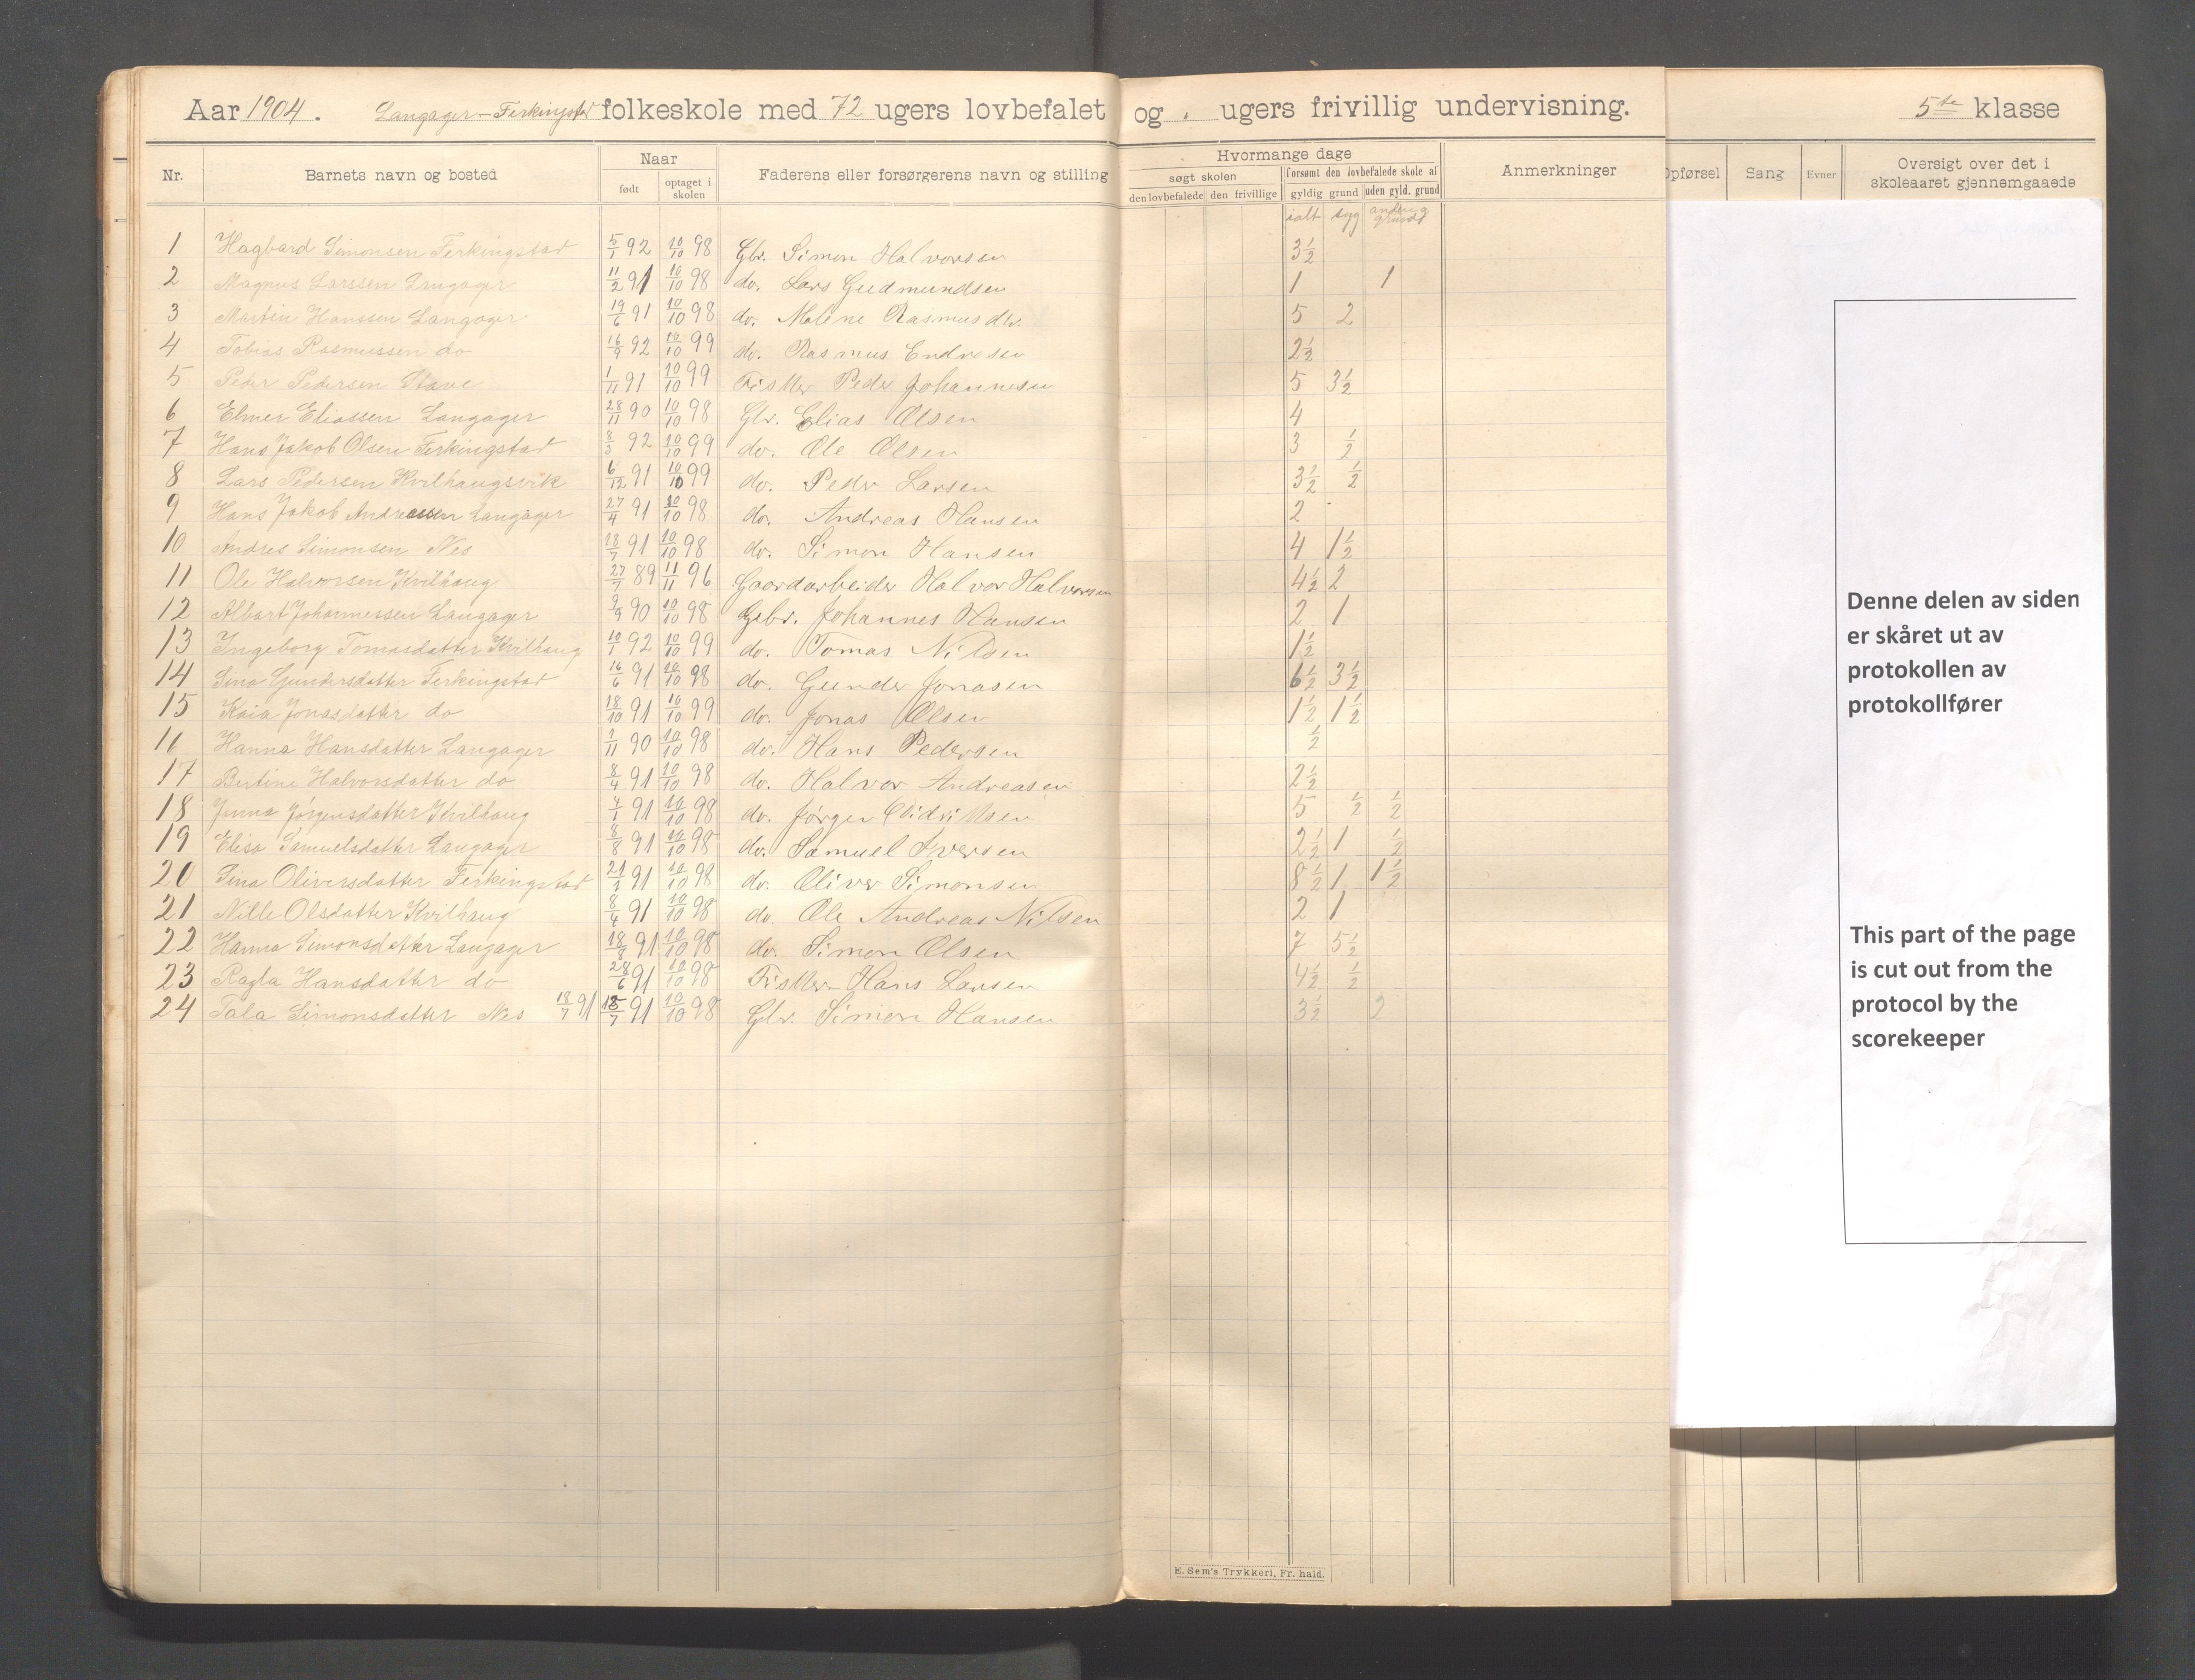 Aar 1904. Langager-Ferkingstad folkeskole med 72 ugers lovbefalet og . ugers frivillig undervisning. 5te klasse
Nr. Barnets navn og bosted Naar født optaget i skolen Faderens eller forsørgerens navn og stilling Hvormange dage søgt skolen den lovbefalede den frivillige forsømt den lovbefalede skole af gyldig grund uden gyld. grund Anmerkninger Opførsel Sang Evner Oversigt over det i skoleaaret gjennemgaaede
ialt syg
1 Hagbard Simonsen Ferkingstad 5/1 92 10/10 98 Gbr. Simon Halvorsen 3½
2 Magnus Larssen Langager 11/2 91 10/10 98 do. Lars Gudmundsen 1 1
3 Martin Hanssen Langager 19/6 91 10/10 98 do. Malene Rasmusdtr. 5 2
4 Tobias Rasmussen do 16/9 92 10/10 99 do. Rasmus Endresen 2½
5 Peder Pedersen Stave 1/11 91 10/10 99 Fisker Peder Johannesen 5 3½
6 Elmer Eliassen Langager 28/11 90 10/10 98 Gbr. Elias Olsen 4
7 Hans Jakob Olsen Ferkingstad 8/3 92 10/10 99 do. Ole Olsen 3 ½
8 Lars Pedersen Kvilhaugsvik 6/12 91 10/10 99 do. Peder Larsen 3½ ½
9 Hans Jakob Andreassen Langager 27/4 91 10/10 98 do. Andreas Hansen 2
10 Andres Simonsen Nes 18/7 91 10/10 98 do. Simon Hansen 4 1½
11 Ole Halvorsen Kvilhaug 27/7 89 11/11 96 Gaardarbeider Halvor Halvorsen 4½ 2
12 Albert Johannessen Langager 9/9 90 10/10 98 Gbr. Johannes Hansen 2 1
13 Ingeborg Tomasdatter Kvilhaug 10/1 92 10/10 99 do. Tomas Nilsen 1½
14 Sina Gundersdatter Ferkingstad 16/6 91 10/10 98 do. Gunder Jonasen 6½ 3½
15 Kaia Jonasdatter do 18/10 91 10/10 99 do. Jonas Olsen 1½ 1½
16 Hanna Hansdatter Langager 1/11 90 10/10 98 do. Hans Pedersen ½
17 Bertine Halvorsdatter do 8/4 91 10/10 98 do. Halvor Andreasen 2½
18 Jørgensdatter Kvilhaug 91 10/10 98 do. Jørgen Didriksen 5 ½ ½
19 Elisa Samuelsdatter Langager 8/8 91 10/10 98 do. Samuel Iversen 2½ 1 ½
20 Sina Oliversdatter Ferkingstad 91 10/10 98 do. Oliver Simonsen 8½ 1 1½
21 Nille Olsdatter Kvilhaug 8/4 91 10/10 98 do. Ole Andreas Nilsen 2 1
22 Hanna Simonsdatter Langager 18/8 91 10/10 98 do. Simon Olsen 7 5½
23 Ragla Hansdatter do 28/6 91 10/10 98 Fisker Hans Larsen 4½ ½
24 Tala Simonsdatter Nes 18/7 91 18/7 91 10/10 98 Gbr. Simon Hansen 3½ 2
E. Sem's Trykkeri, Fr. hald.
Denne delen av siden
er skåret ut av
protokollen av
protokollfører
This part of the page
is cut out from the
protocol by the
scorekeeper